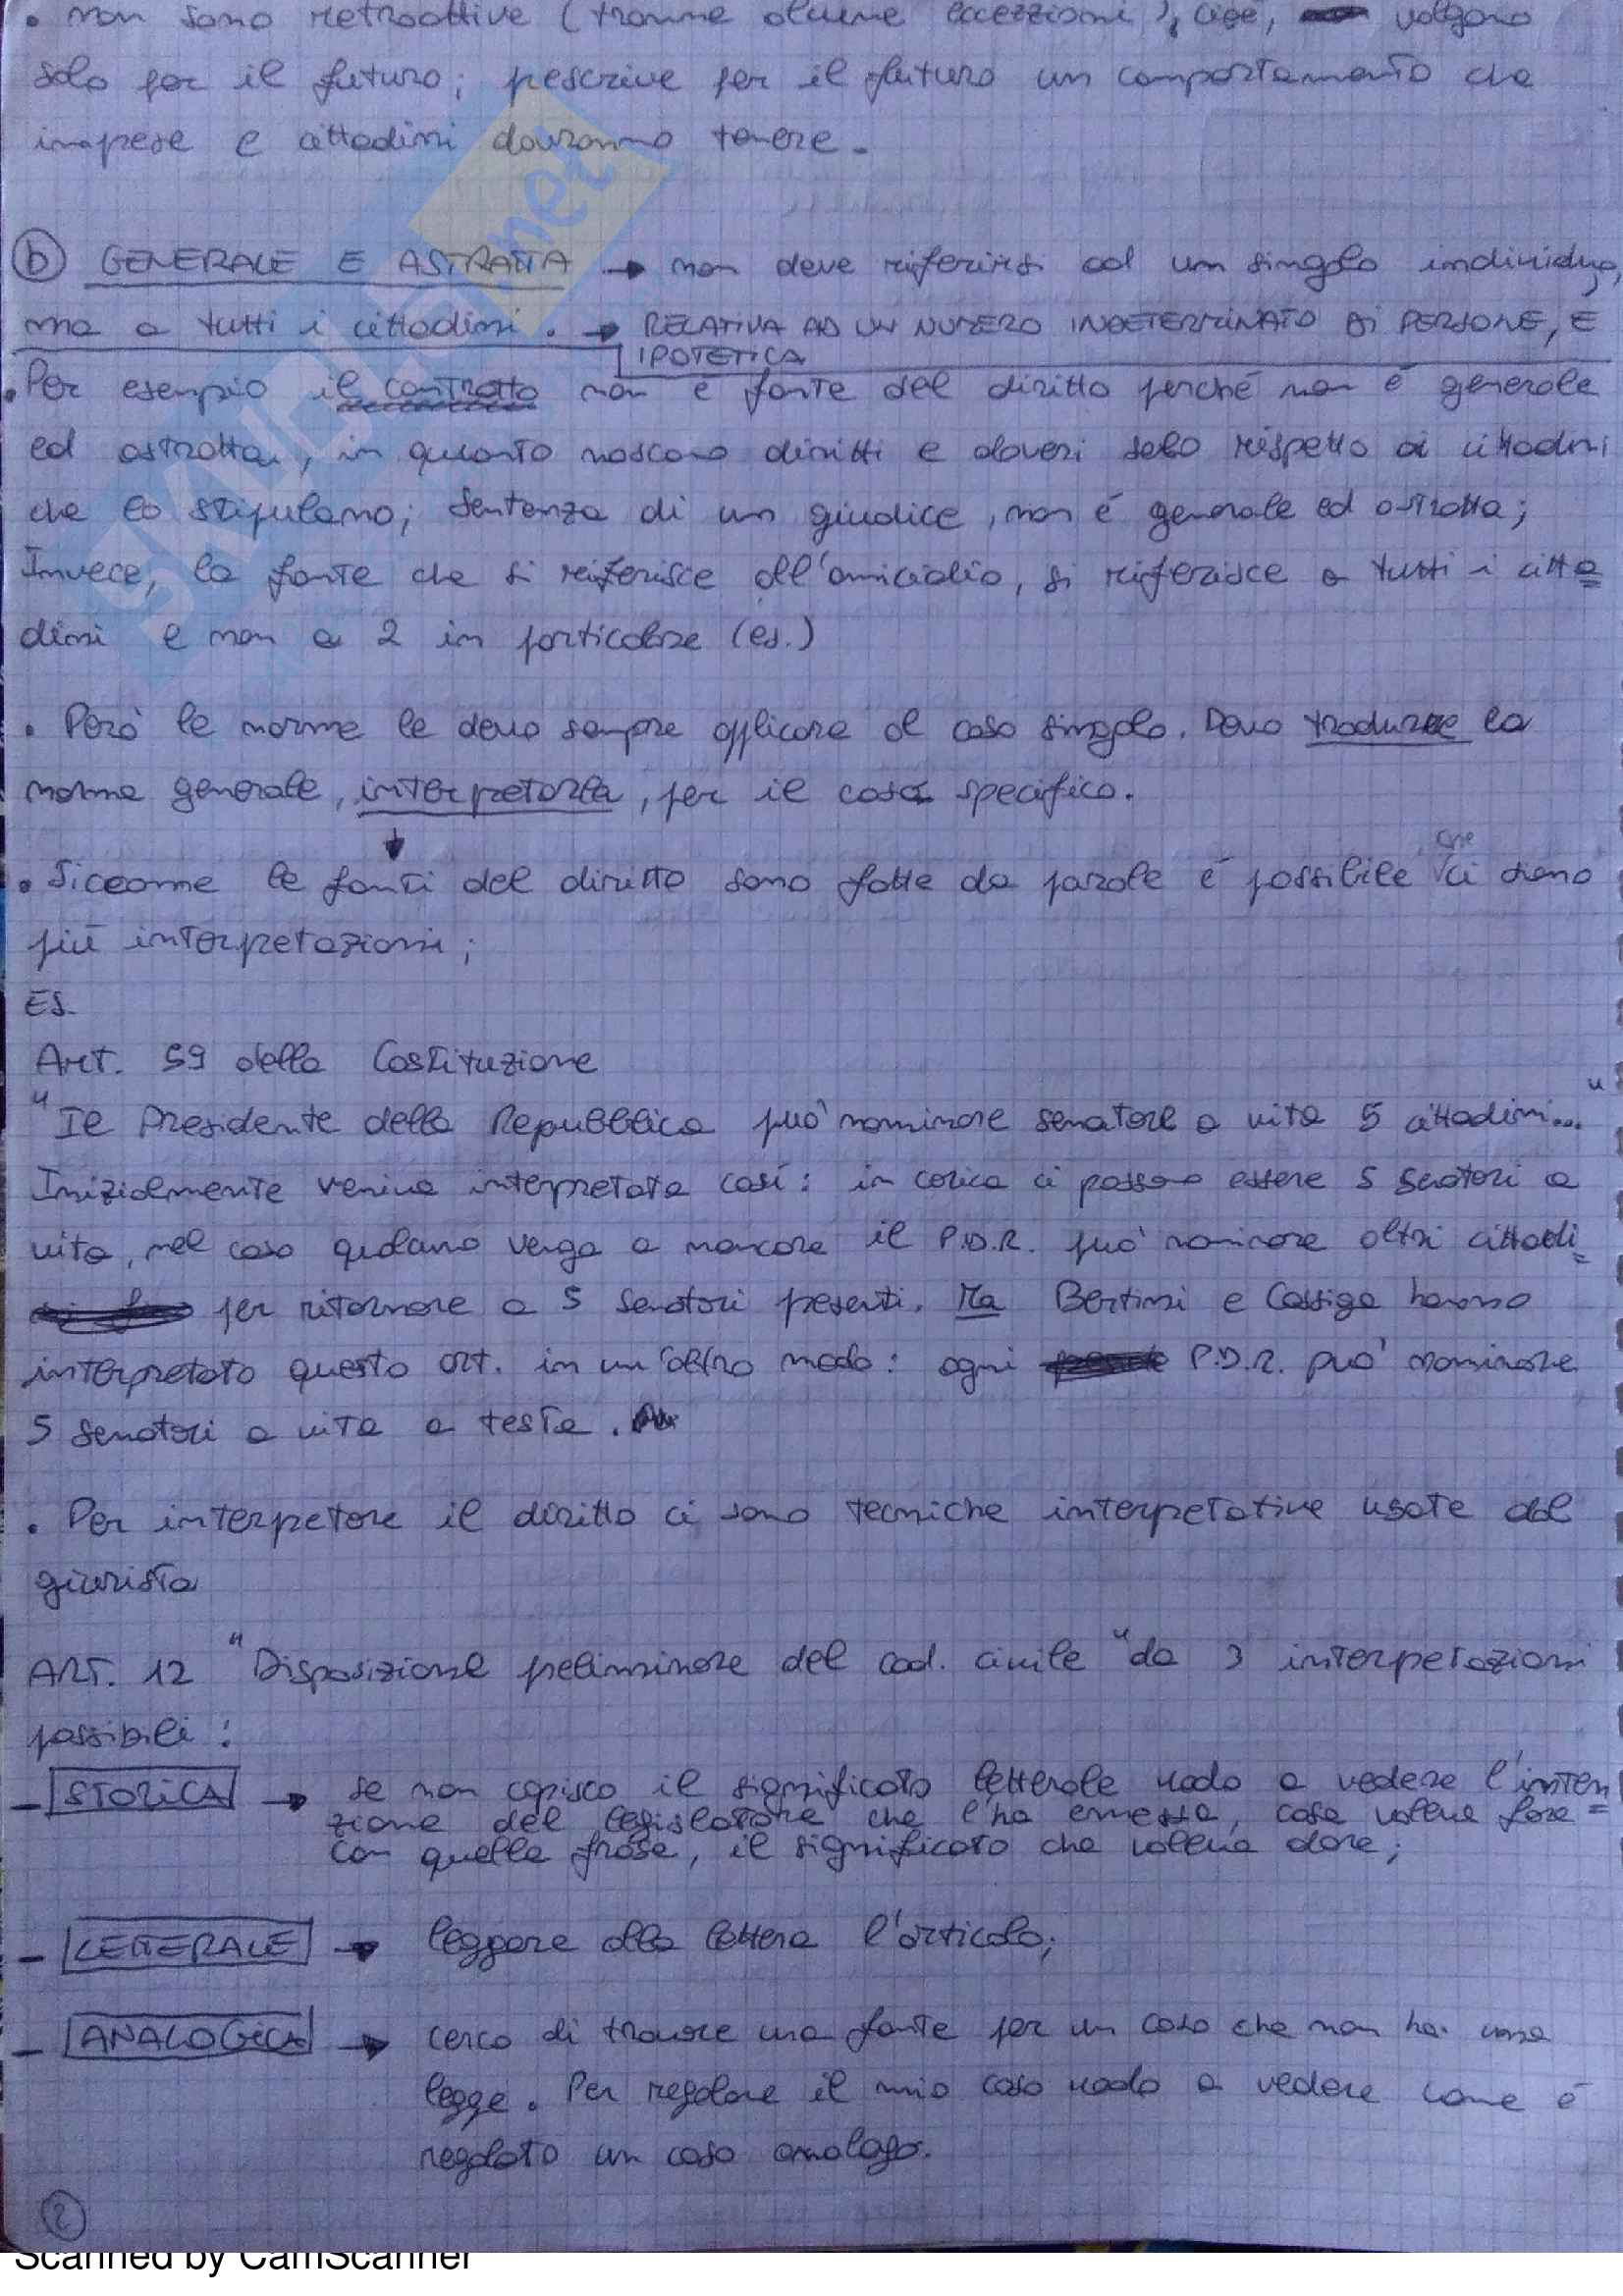 • non sono retroattive (tranne alcune eccezzioni), cioè, valgono
solo per il futuro; pescrive per il futuro un comportamento che
imprese e cittadini dovranno tenere.
b GENERALE E ASTRATTA → non deve riferirsi ad un singolo individuo,
ma a tutti i cittadini. → RELATIVA AD UN NUMERO INDETERMINATO DI PERSONE, E
IPOTETICA
• Per esempio il contratto non è fonte del diritto perché non é generale
ed astratta, in quanto nascono diritti e doveri solo rispetto ai cittadini
che lo stipulano; sentenza di un giudice, non é generale ed astratta;
Invece, la fonte che si riferisce all'omicidio, si riferisce a tutti i citta=
dini e non a 2 in particolare (es.)
• Però le norme le devo sempre applicare al caso singolo. Devo tradurre la
norma generale, interpretarla, per il caso specifico.
• Siccome le fonti del diritto sono fatte da parole é possibile che ci siano
più interpretazioni;
ES.
Art. 59 della Costituzione
"Il Presidente della Repubblica può nominare senatore a vita 5 cittadini..."
Inizialmente veniva interpretata così: in carica ci possono essere 5 senatori a
vita, nel caso qualcuno venga a mancare il P.D.R. può nominare altri cittadi=
per ritornare a 5 senatori presenti. Ma Bertini e Cossiga hanno
interpretato questo art. in un'altro modo: ogni P.D.R. può nominare
5 senatori a vita a testa.
• Per interpretare il diritto ci sono tecniche interpretative usate dal
giurista
ART. 12 "Disposizione preliminare del cod. civile" da 3 interpretazioni
possibili:
- STORICA → se non capisco il significato letterale vado a vedere l'inten
zione del legislatore che l'ha emessa, cosa voleva fare =
con quella frase, il significato che voleva dare;
- LETTERALE → leggere alla lettera l'articolo;
- ANALOGICA → cerco di trovare una fonte per un caso che non ha una
legge. Per regolare il mio caso vado a vedere come é
regolato un caso analogo.
2
Scanned by CamScanner
SKUOLA.net